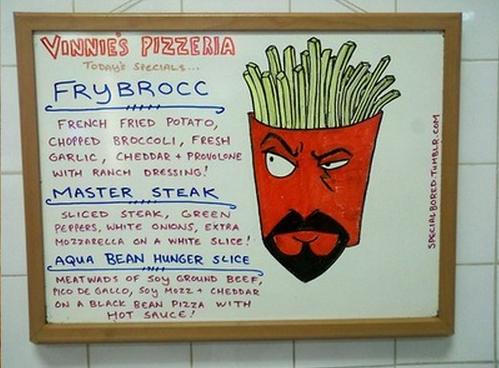 VINNIE'S PIZZERIA
TODAY'S SPECIALS...
FRYBROCC
FRENCH FRIED POTATO,
CHOPPED BROCCOLI, FRESH
GARLIC, CHEDDAR + PROVOLONE
WITH RANCH DRESSING!
MASTER STEAK
SLICED STEAK, GREEN
PEPPERS, WHITE ONIONS, EXTRA
MOZZARELLA ON A WHITE SLICE!
AQUA BEAN HUNGER SLICE
MEATWADS OF SOY GROUND BEEF,
PICO DE GALLO, SOY MOZZ + CHEDDAR
ON A BLACK BEAN PIZZA WITH
HOT SAUCE!
SPECIALBORED.TUMBLR.COM